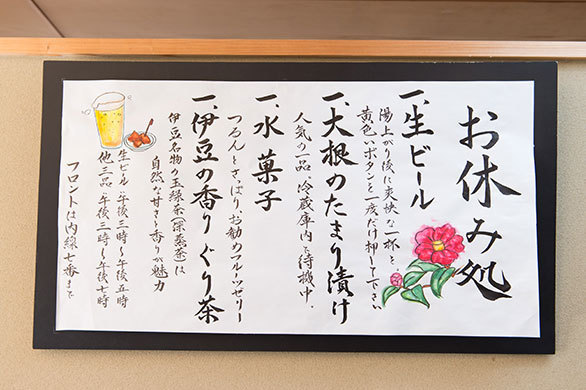 お休み処
一、生ビール
湯上がり後に爽快な一杯を。
黄色いボタンを一度だけ押して下さい
一、大根のたまり漬け
人気の一品、冷蔵庫内で待機中。
一、水菓子
つるんとさっぱり、お勧めフルーツゼリー
一、伊豆の香り ぐり茶
伊豆名物の玉緑茶(深蒸茶)は
自然な甘さと香りが魅力
生ビール 午後三時〜午後五時
他三品 午後三時〜午後七時
フロントは内線七番まで